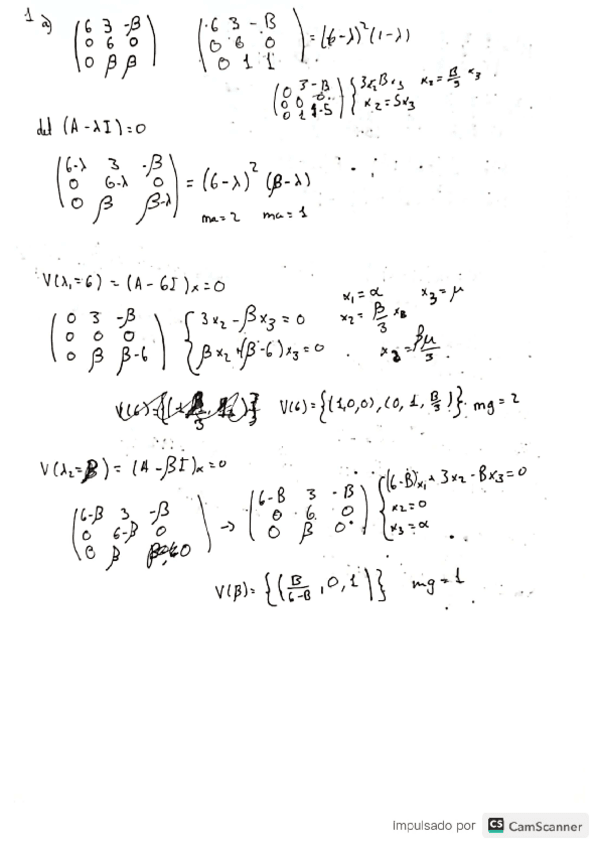 1 a) (6 3 -β / 0 6 0 / 0 β β) (6 3 -B / 0 6 0 / 0 1 1) = (6-λ)² (1-λ)
(0 3 -B / 0 0 0 / 0 1 1-5) { x₂ = 5x₃ x₂ = B/3 x₃
det (A-λI)=0
(6-λ 3 -β / 0 6-λ 0 / 0 β β-λ) = (6-λ)² (β-λ)
ma=2 ma=1
V(λ₁=6) = (A-6I)x=0
(0 3 -β / 0 0 0 / 0 β β-6) { 3x₂-βx₃=0 / βx₂+(β-6)x₃=0
x₁=α x₃=μ
x₂= β/3 x₃
x₂ = βμ/3
V(6)={(1,0,0),(0,1,β/3)} mg=2
V(λ₂=β) = (A-βI)x=0
(6-β 3 -β / 0 6-β 0 / 0 β 0) → (6-B 3 -B / 0 6 0 / 0 β 0) { (6-B)x₁+3x₂-Bx₃=0 / x₂=0 / x₃=α
V(β)= {(B/6-B, 0, 1)} mg=1
Impulsado por CS CamScanner